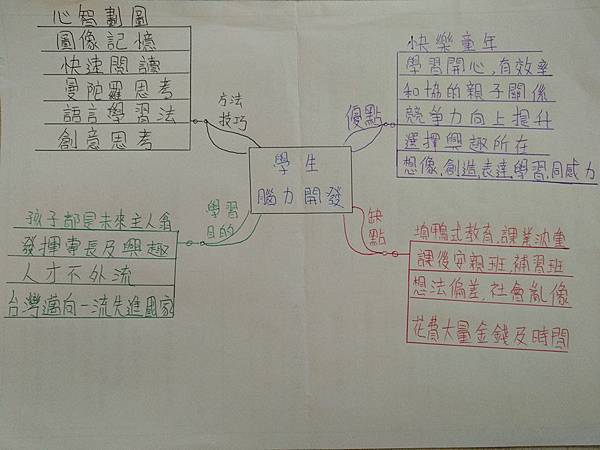 學生
腦力開發
方法
技巧
心智劃圖
圖像記憶
快速閱讀
曼陀羅思考
語言學習法
創意思考
優點
快樂童年
學習開心,有效率
和協的親子關係
競爭力向上提升
選擇興趣所在
想像,創造,表達,學習,同感力
學習
目的
孩子都是未來主人翁
發揮專長及興趣
人才不外流
台灣邁向一流先進國家
缺點
填鴨式教育,課業沈重
課後安親班,補習班
想法偏差,社會亂像
花費大量金錢及時間